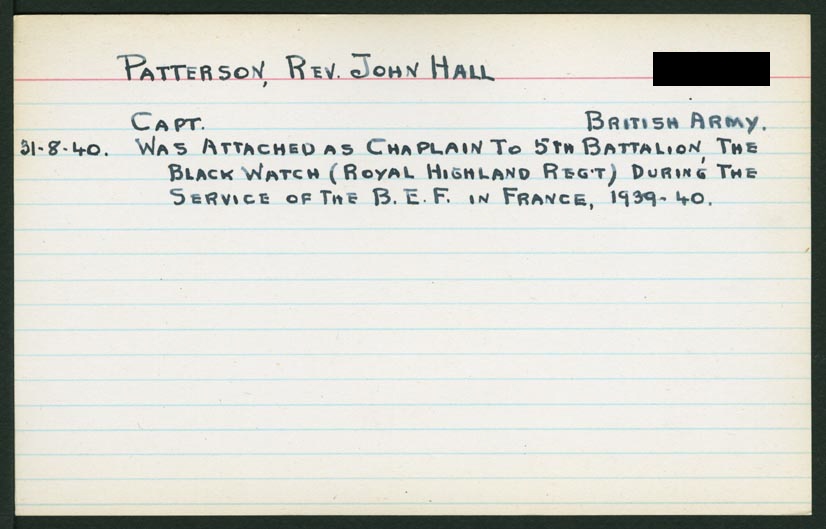 PATTERSON, REV. JOHN HALL
CAPT. BRITISH ARMY.
31-8-40. WAS ATTACHED AS CHAPLAIN TO 5TH BATTALION, THE
BLACK WATCH (ROYAL HIGHLAND REG'T) DURING THE
SERVICE OF THE B.E.F. IN FRANCE, 1939-40.